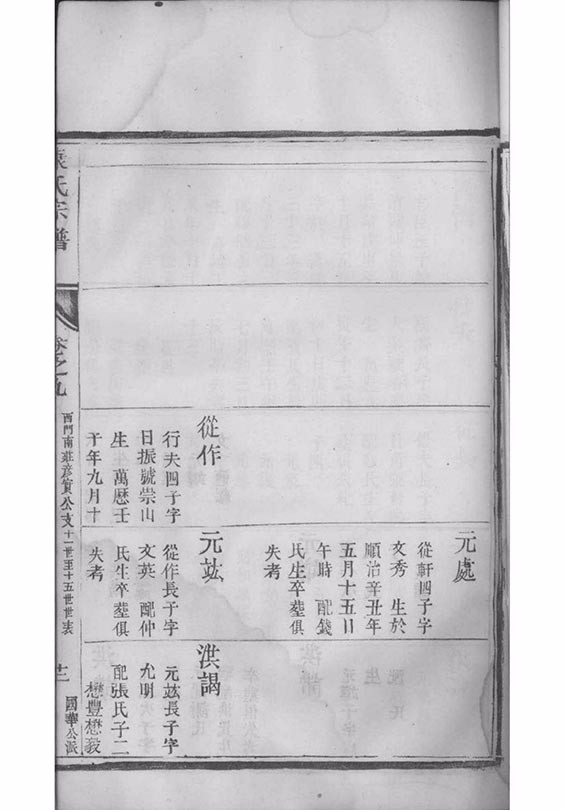 元處
從軒四子字
文秀 生於
順治辛丑年
五月十五日
午時 配錢
氏生卒塟俱
失考
從作
行夫四子字
日振號崇山
生生萬歷壬
午年九月十
元竑
從作長子字
文英 配仲
氏生卒塟俱
失考
洪謁
元竑長子字
允明
配張氏子二
懋豐懋毅
袁氏宗譜
卷之九
西門南莊彥賓公支十一世至十五世世表
國華公派